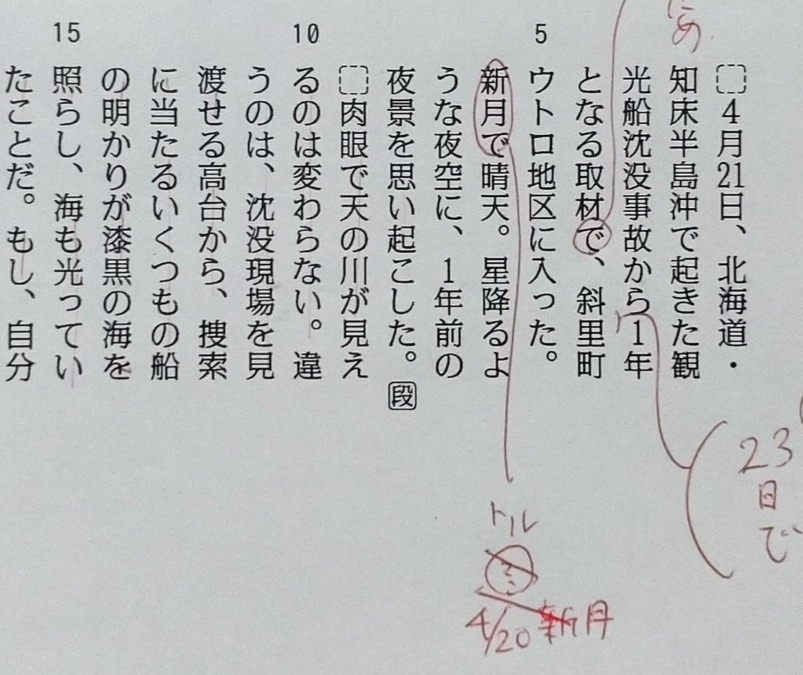 4月21日、北海道・
知床半島沖で起きた観
光船沈没事故から1年
となる取材で、斜里町
5
ウトロ地区に入った。
新月で晴天。星降るよ
うな夜空に、1年前の
夜景を思い起こした。段
肉眼で天の川が見え
10
るのは変わらない。違
うのは、沈没現場を見
渡せる高台から、捜索
に当たるいくつもの船
の明かりが漆黒の海を
15
照らし、海も光ってい
たことだ。もし、自分
23
日
で
トル
4/20 新月